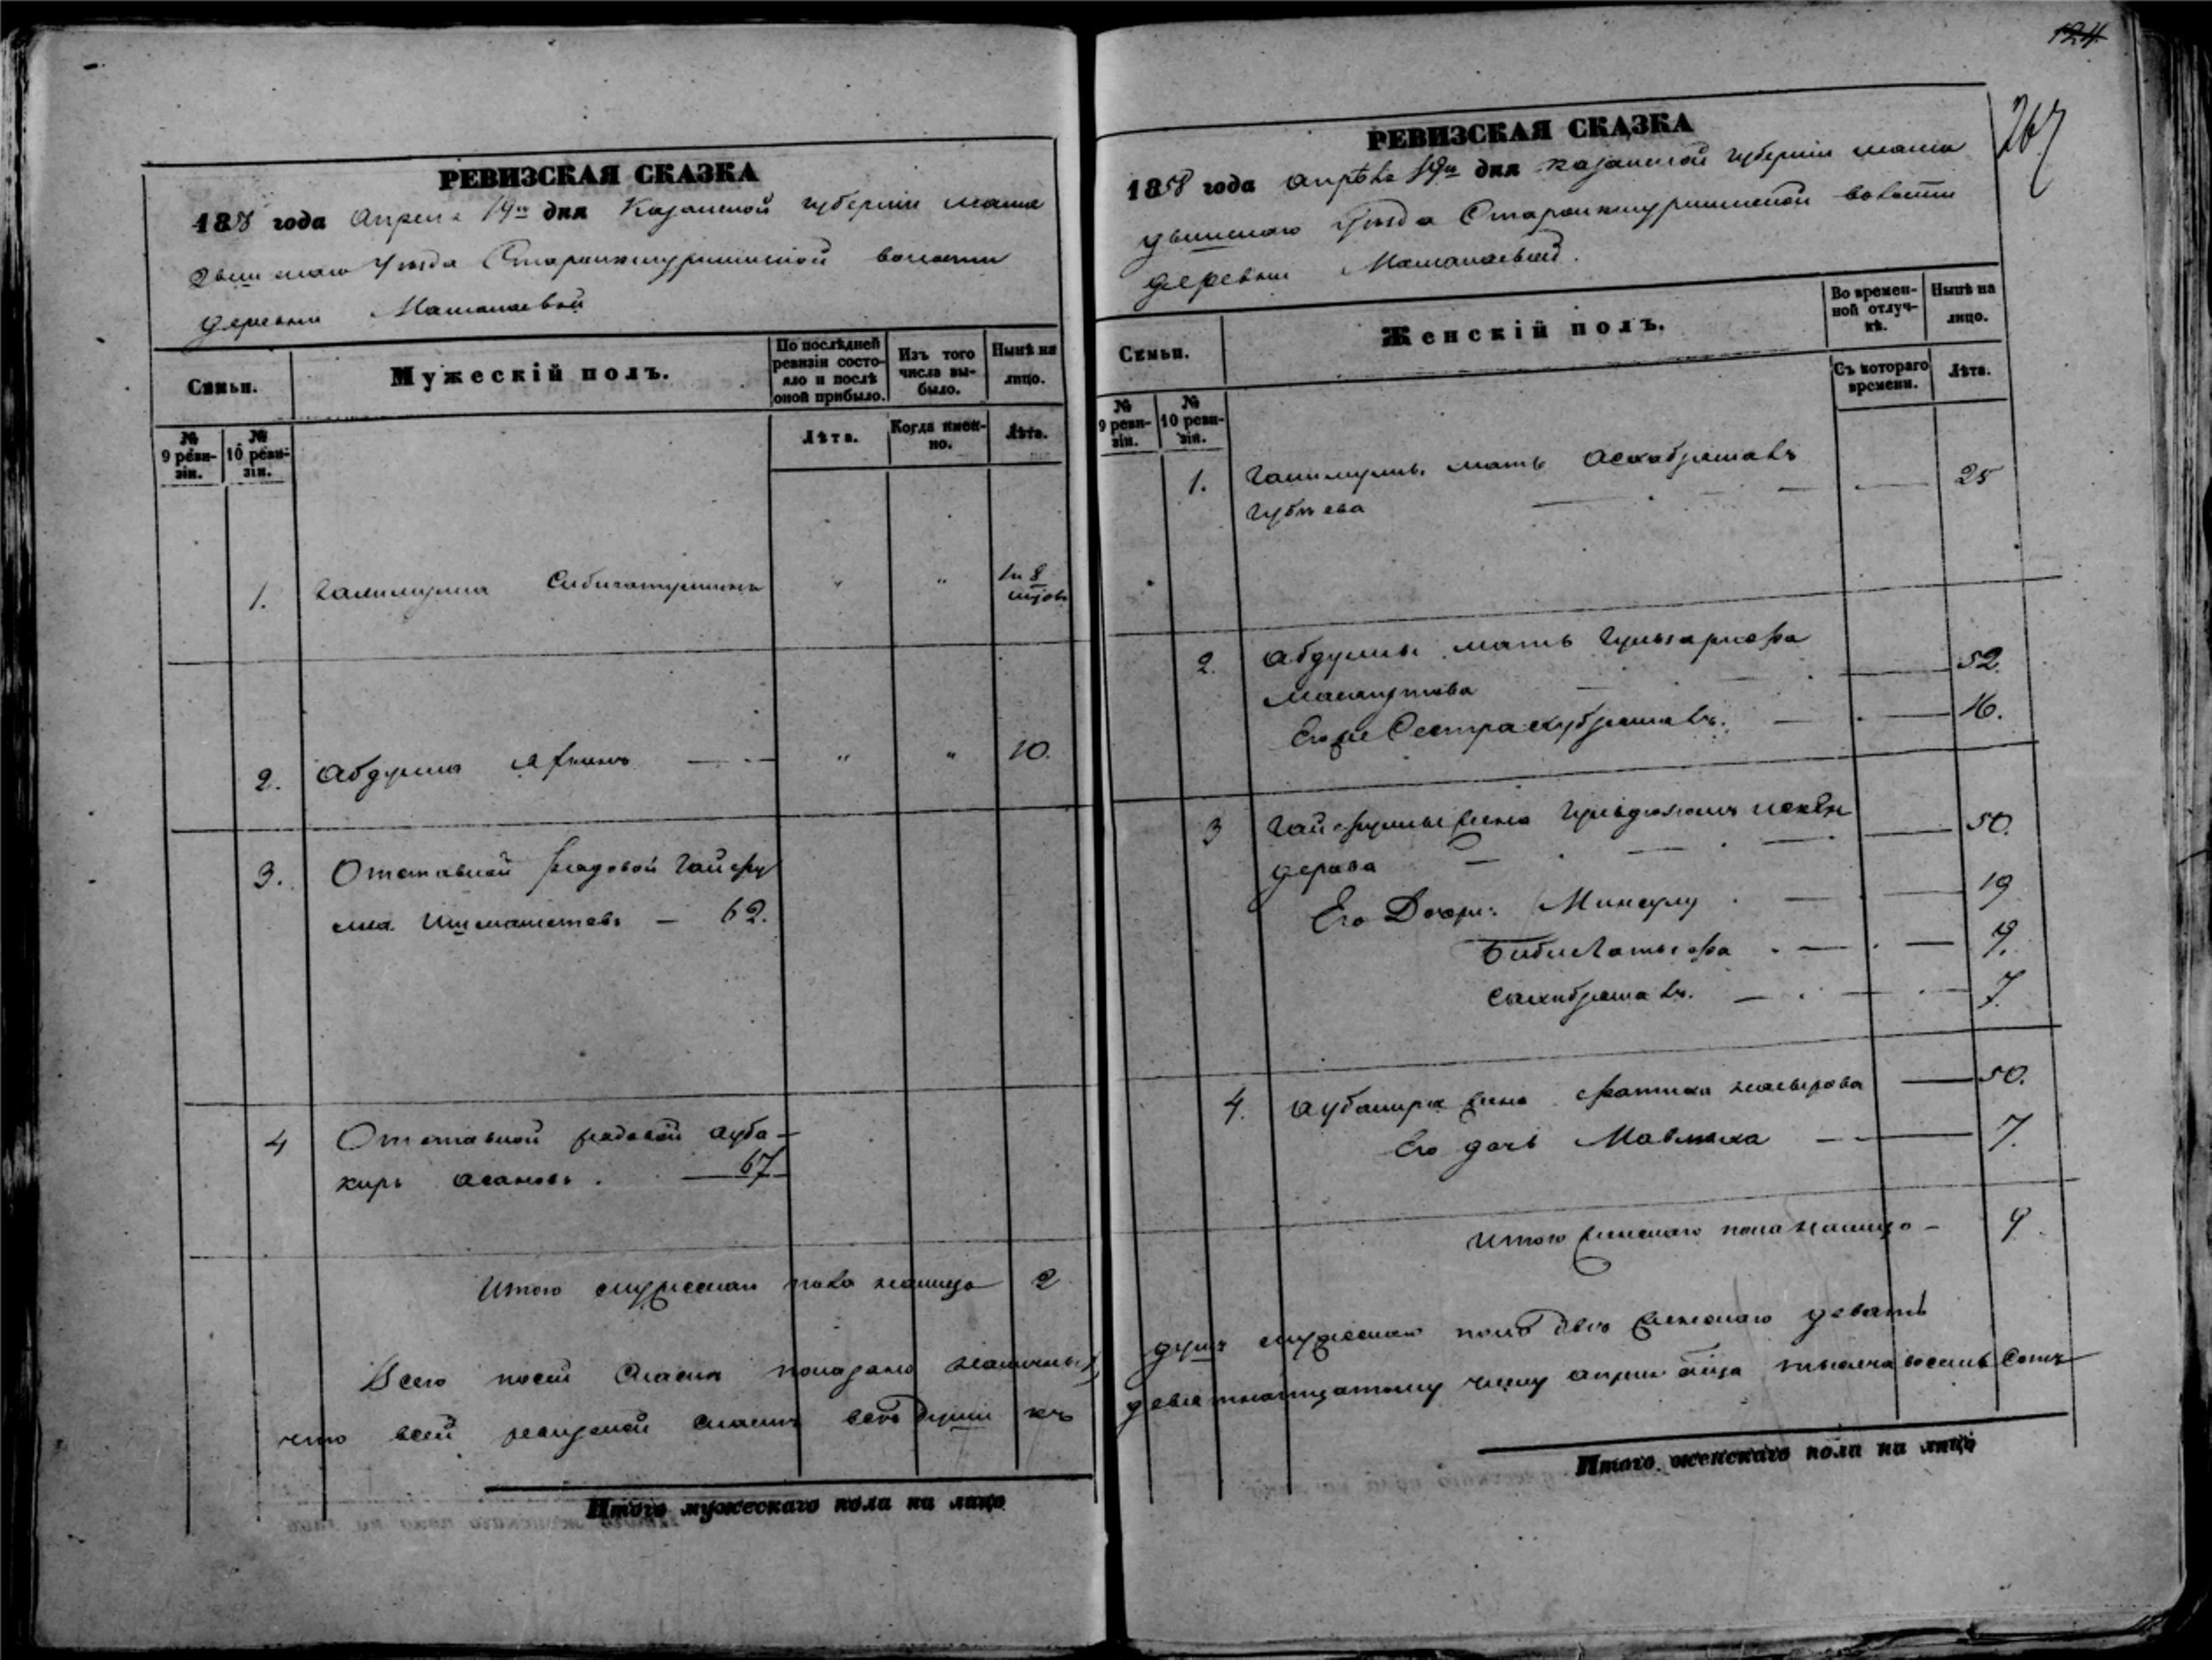 124
267
РЕВИЗСКАЯ СКАЗКА
1858 года Апреля 19го дня Казанской губернии Мама
дышскаго Уезда Старокишурминской волости
деревни
Семьи.
Мужескій полъ.
По послѣдней ревизіи состояло и послѣ оной прибыло.
Изъ того числа выбыло.
Нынѣ на лицо.
№ 9 ревизіи.
№ 10 ревизіи.
Лѣта.
Когда именно.
Лѣта.
1.
" "
2. Абдулла " " 10.
3. Отставной рядовой Гайфу
лла Ишмаметевъ — 62.
4 Отставной рядовой Ауба-
киръ Асановъ. — 67
Итого мужескаго пола налицо 2
Всего посей сказки показано наличныхъ
что всей ревизской сказки всѣ души къ
Итого мужескаго пола на лицо
РЕВИЗСКАЯ СКАЗКА
1858 года апрѣля 19го дня Казанской губерніи мама
дышскаго уѣзда Старокишурминской волости
деревни
Семьи.
Женскій полъ.
Во временной отлучкѣ.
Нынѣ на лицо.
№ 9 ревизіи.
№ 10 ревизіи.
Съ котораго времени.
Лѣта.
1. мать
25
2. Абдуллы мать
52.
Его же Сестра 16.
3 Гайфуллы жена Искен
дерова 50.
Его Дочери: Минсулу 19
Бибилатыфа 9.
7.
4. Аубакира жена Фатиха Насырова 50.
Его дочь 7.
Итого женскаго пола налицо — 9
душъ мужескаго пола двѣ женскаго девять
девятнатцатому числу апреля мѣсяца тысяча восемь сотъ
Итого женскаго пола на лицо